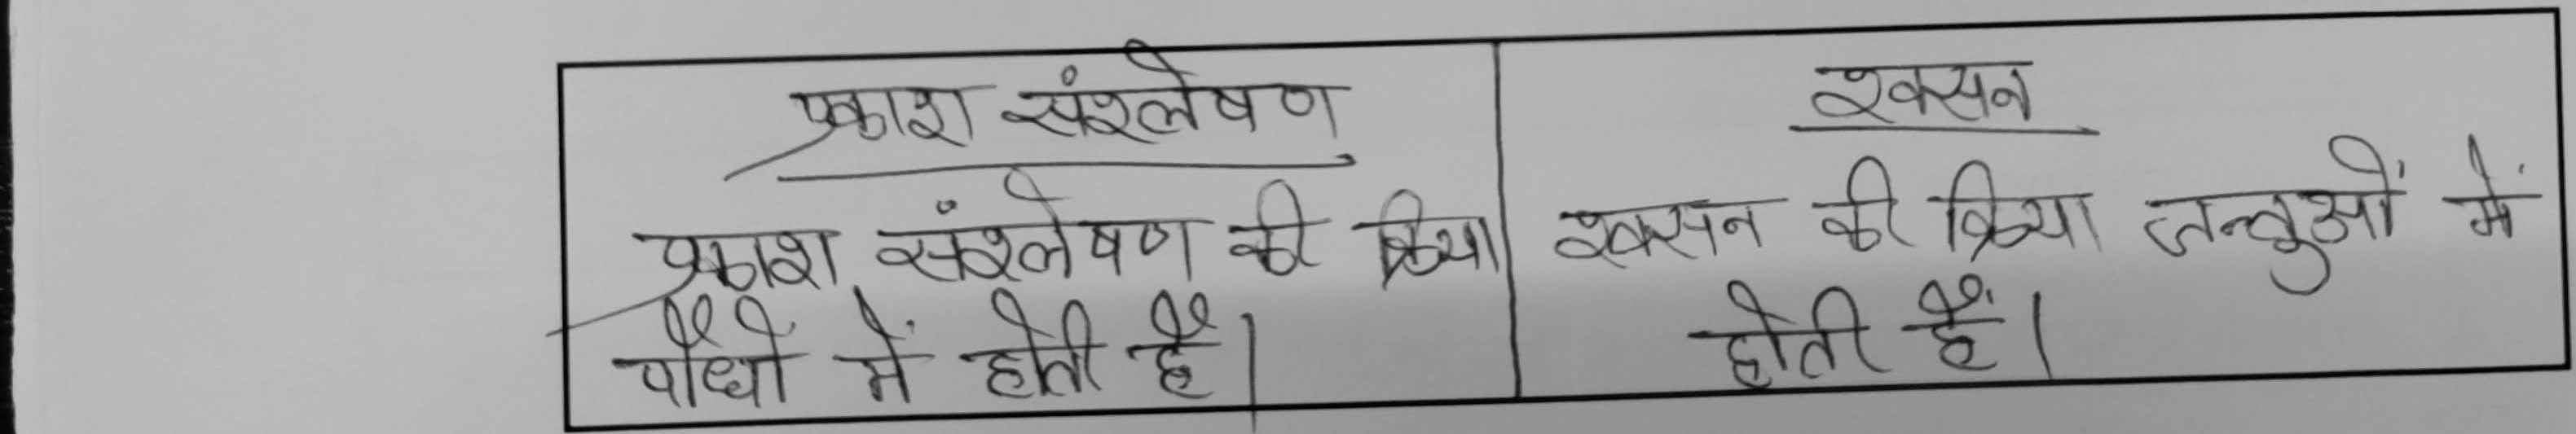 प्रकाश संश्लेषण
प्रकाश संश्लेषण की क्रिया
पौधों में होती है।
श्वसन
श्वसन की क्रिया जन्तुओं में
होती हैं।